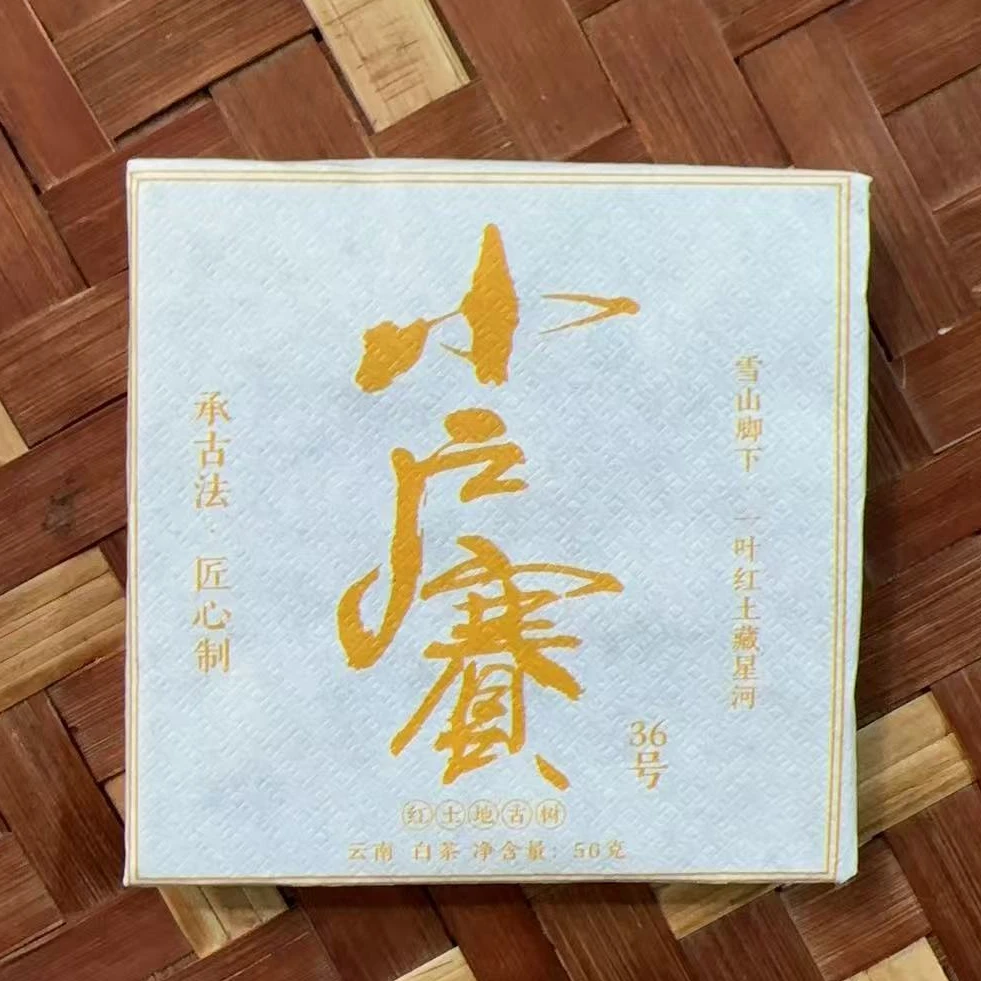 小户赛
36号
雪山脚下 一叶红土藏星河
承古法·匠心制
红土地古树
云南 白茶 净含量：50克